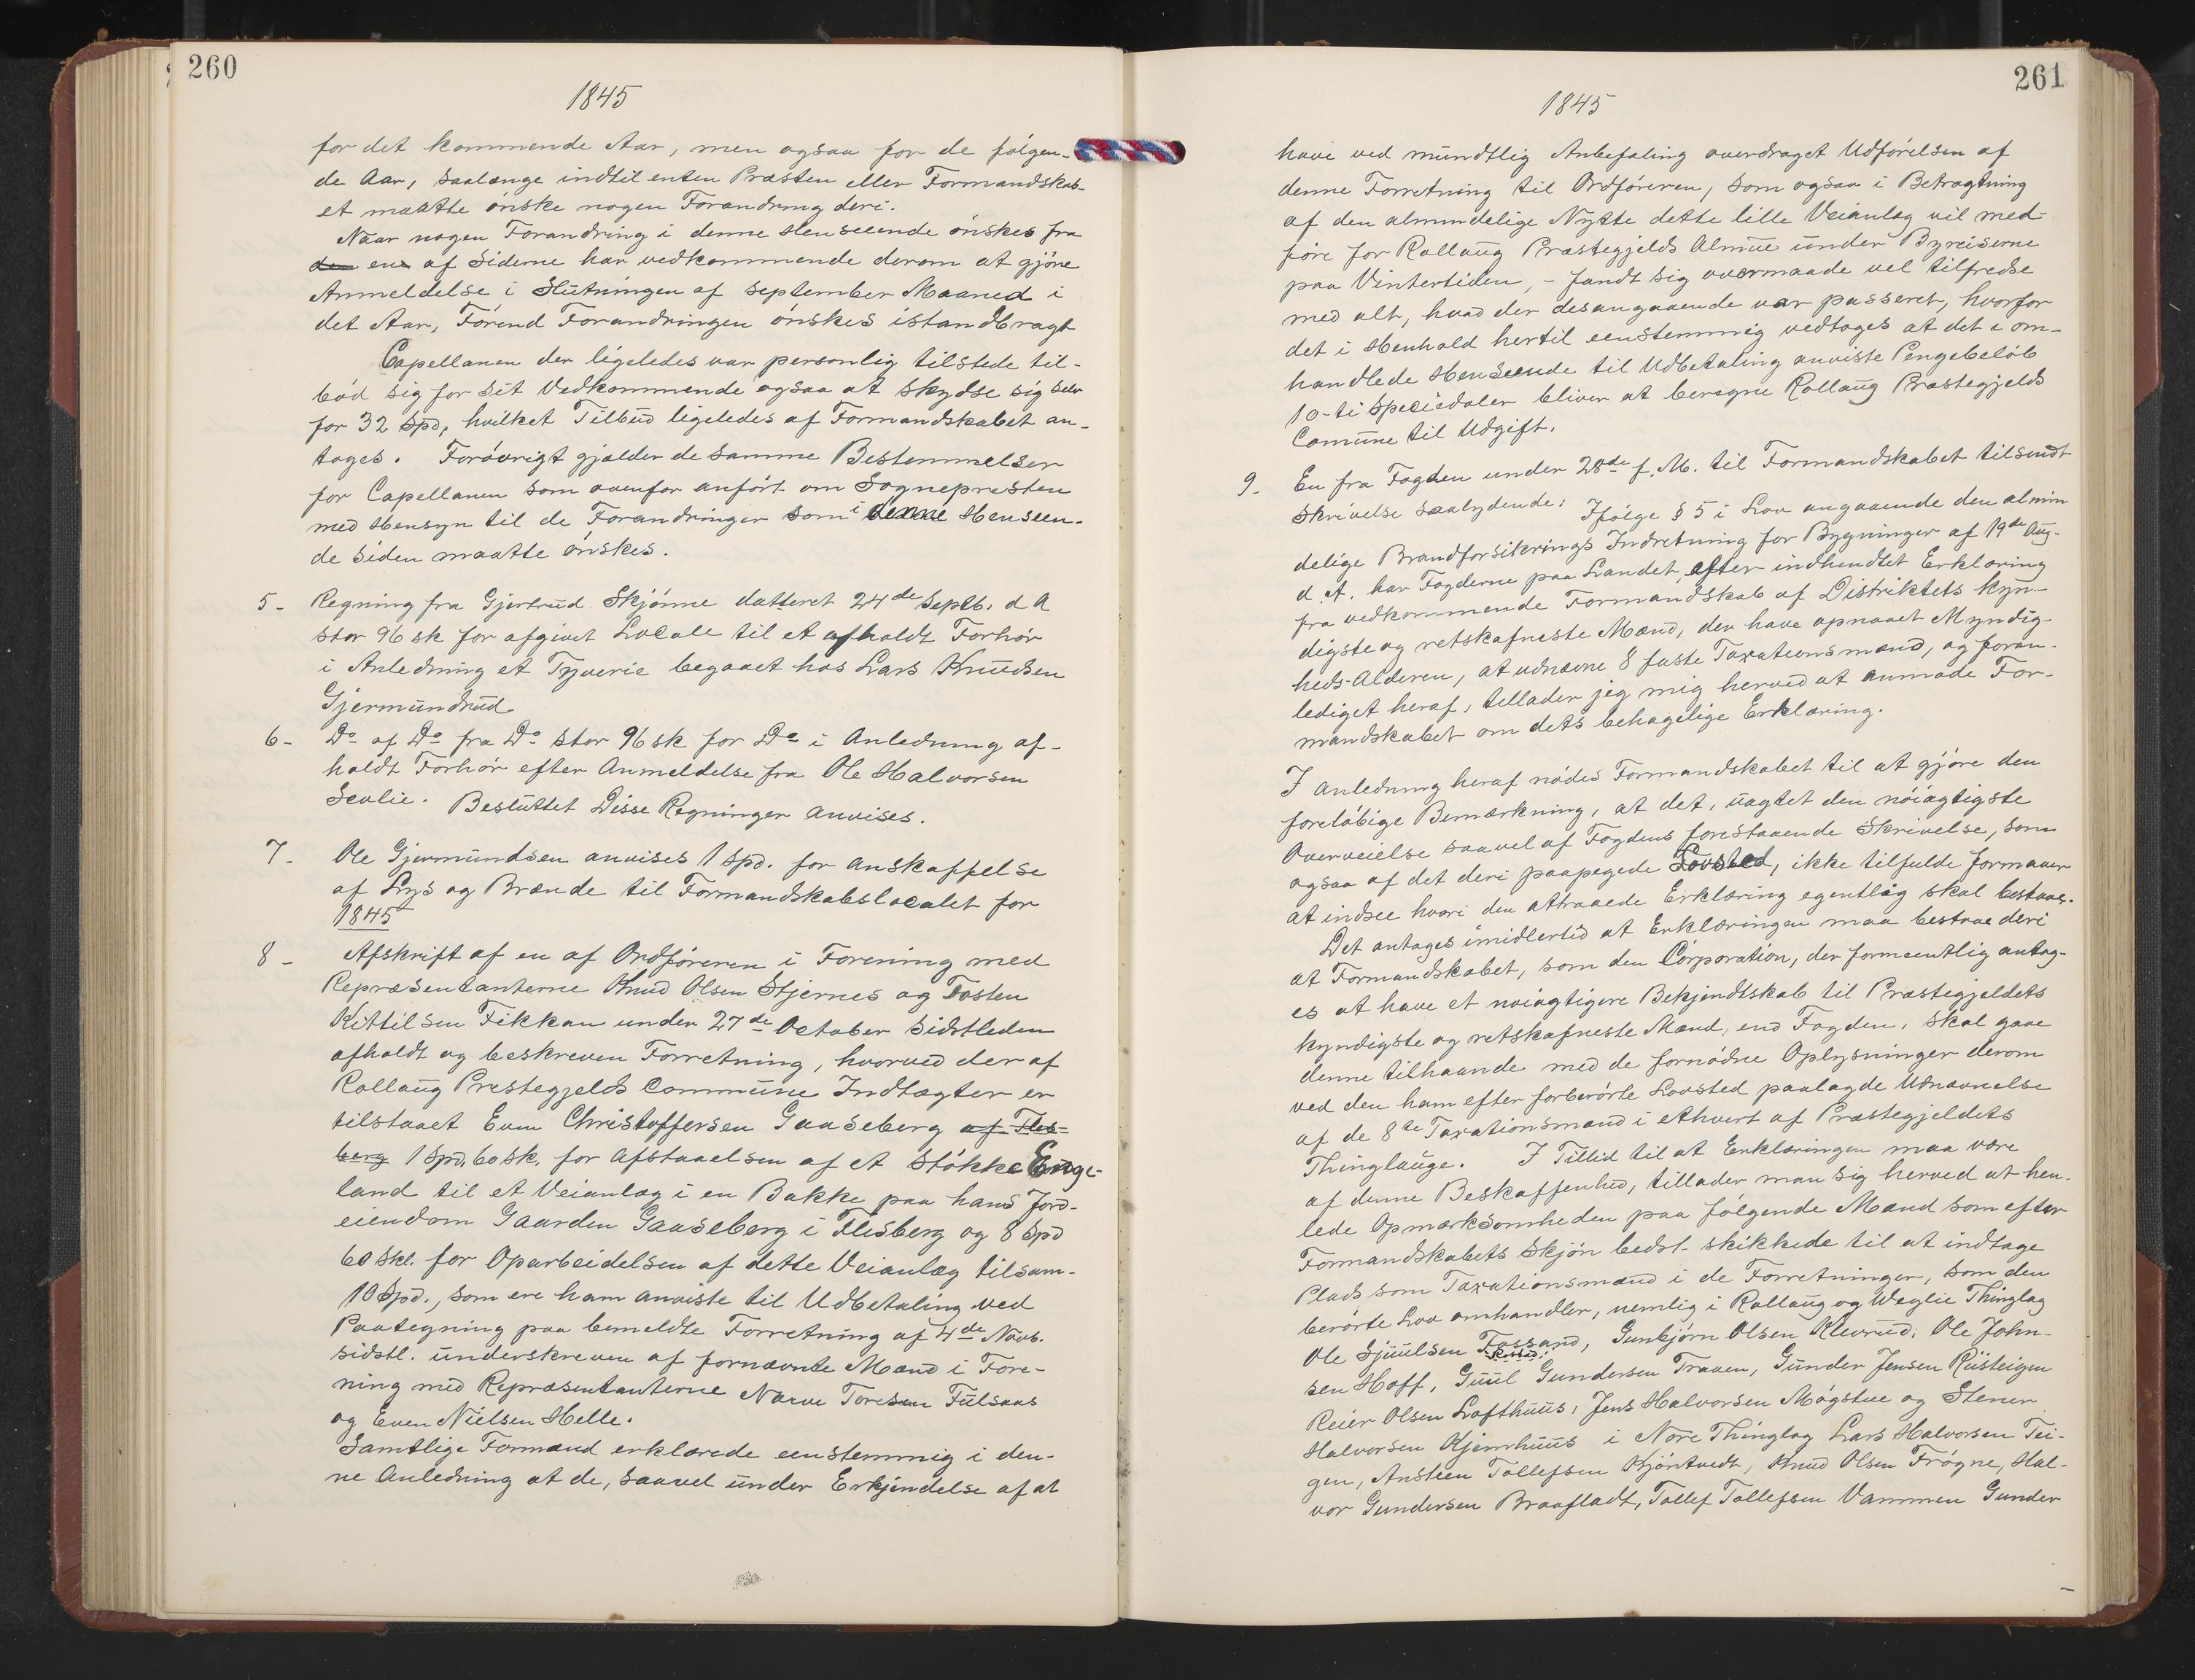 260
1845
for det kommende Aar, men ogsaa for de følgen-
de Aar, saalænge indtil enten Præsten eller Formandskab-
et maatte ønske nogen Forandring deri.
Naar nogen Forandring i denne Henseende ønskes fra
den en af Siderne har vedkommende derom at gjøre
Anmeldelse i Slutningen af September Maaned i
det Aar, Førend Forandringen ønskes istandbragt
Capellanen der ligeledes var personlig tilstede til-
bød sig for sit Vedkommende ogsaa at skydse sig selv
for 32 Spd, hvilket Tilbud ligeledes af Formandskabet an-
toges. Forøvrigt gjælder de samme Bestemmelser
for Capellanen som ovenfor anført om Sognepresten
med Hensyn til de Forandringer som i denne Henseen-
de siden maatte ønskes.
5- Regning fra Gjertrud Skjønne datteret 24de Septb. d A
stor 96 sk for afgivet Locale til et afholdt Forhør
i Anledning et Tyverie begaaet hos Lars Knudsen
Gjermundrud
6- Do af Do fra Do stor 96 sk for Do i Anledning af-
holdt Forhør efter Anmeldelse fra Ole Halvorsen
Sevlie. Besluttet Disse Regninger anvises.
7- Ole Gjermundsen anvises 1 Spd. for anskaffelse
af Lys og Brænde til Formandskabslocalet for
1845
8- Afskrift af en af Ordføreren i Forening med
Repræsentanterne Knud Olsen Stjernes og Tosten
Kittilsen Fikkan under 27de October sidstleden
afholdt og beskreven Forretning, hvorved der af
Rollaug Prestegjelds Commune Indtægter er
tilstaaet Even Christoffersen Gaaseberg af Fles-
berg 1 Spd. 60 sk. for Afstaaelsen af et støkke Enge-
land til et Veianlæg i en Bakke paa hans Jord-
eiendom Gaarden Gaaseberg i Flisberg og 8 Spd
60 Skl. for Oparbeidelsen af dette Veianlæg tilsam-
10 Spd., som ere ham anviste til Udbetaling ved
Paategning paa bemeldte Forretning af 4de Novb.
sidstl. underskreven af fornævnte Mænd i Fore-
ning med Repræsentanterne Narve Toresen Fulsaas
og Even Nielsen Helle.
Samtlige Formænd erklærede eenstemmig i den-
ne Anledning at de, saavel under Erkjendelse af at
261
1845
have ved mundtlig Anbefaling overdraget Udførelsen af
denne Forretning til Ordføreren, som ogsaa i Betragtning
af den almindelige Nytte dette lille Veianlæg vil med-
føre for Rollaug Præstegjelds Almue under Byreiserne
paa Vintertiden, - fandt sig overmaade vel tilfredse
med alt, hvad der desangaaende var passeret, hvorfor
det i Henhold hertil eenstemmig vedtages at det i om-
handlede Henseende til Udbetaling anviste Pengebeløb
10-ti Speciedaler bliver at beregne Rollaug Præstegjelds
Comune til Udgift.
9- En fra Fogden under 28de f. M. til Formandskabet tilsendt
Skrivelse saalydende: Ifølge § 5 i Lov angaaende den almin
delige Brandforsikrings Indretning for Bygninger af 19de Aug-
d. A. har Fogderne paa Landet, efter indhendtet Erklæring
fra vedkommende Formandskab af Distriktets kyn-
digste og retskafneste Mænd, der have opnaaet Myndig-
heds-Alderen, at udnævne 8 faste Taxationsmænd, og foran-
lediget heraf, tillader jeg mig herved at anmode For-
mandskabet om dets behagelige Erklæring.
I Anledning heraf nødes Formandskabet til at gjøre den
foreløbige Bemærkning, at det, uagtet den nøiagtigste
Overveielse saavel af Fogdens forestaaende Skrivelse, som
ogsaa af det deri paapegede Lovsted, ikke tilfulde formaaer
at indsee hvori den attraaede Erklæring egentlig skal bestaae.
Det antages imidlertid at Erklæringen maa bestaae deri
at Formandskabet, som den Corporation, der formeentlig antag-
es at have et nøiagtigere Bekjendtskab til Præstegjeldets
kyndigste og retskafneste Mænd, end Fogden, skal gaae
denne tilhaande med de fornødne Oplysninger derom
ved den ham efter forberørte Lovsted paalagde Udnævnelse
af de 8te Taxationsmænd i ethvert af Præstegjeldets
Thinglauge. I Tillid til at Erklæringen maa være
af denne Beskaffenhed, tillader man sig herved at hen-
lede Opmærksomheden paa følgende Mænd som efter
Formandskabets Skjøn bedst skikkede til at indtage
Plads som Taxationsmænd i de Forretninger, som den
berørte Lov omhandler, nemlig i Rollaug og Weglie Thinglag
Ole Sjuulsen Fossand, Gunbjørn Olsen Klevrud, Ole John-
sen Hoff, Guul Gundersen Traaen, Gunder Jensen Rusteigen
Reier Olsen Lofthuus, Jens Halvorsen Møgstue og Stener
Halvorsen Kjemhuus i Nore Thinglag Lars Halvorsen Tei-
gen, Ansteen Tollefsen Kjøntvedt, Knud Olsen Frøgne, Hal-
vor Gundersen Braafladt, Tollef Tollefsen Vammen Gunder